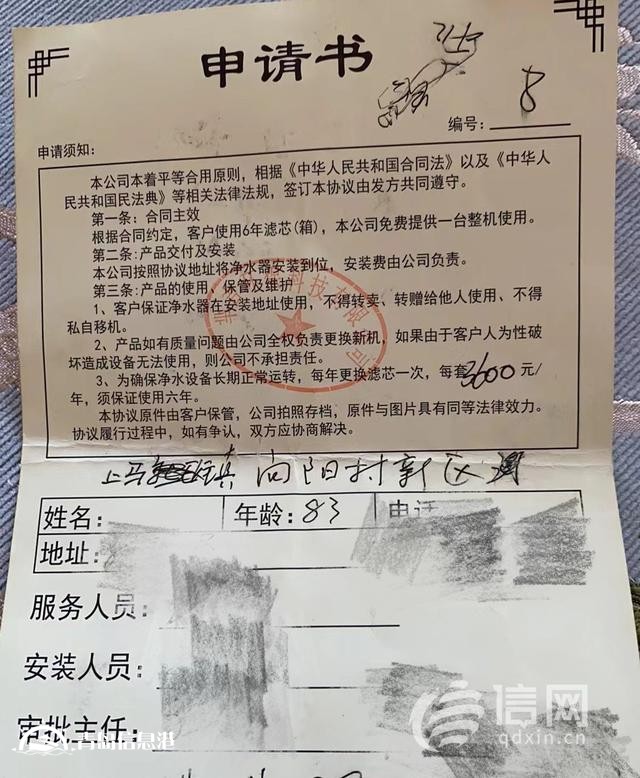 申请书
编号: 8
申请须知:
本公司本着平等合用原则，相据《中华人民共和国合同法》以及《中华人
民共和国民法典》等相关法律法规，签订本协议由发方共同遵守。
第一条: 合同主效
根据合同约定，客户使用6年滤芯(箱)，本公司免费提供一台整机使用。
第二条:产品交付及安装
本公司按照协议地址将净水器安装到位，安装费由公司负责。
第三条:产品的使用，保管及维护
1、客户保证净水器在安装地址使用，不得转卖、转赠给他人使用、不得
私自移机。
2、产品如有质量问题由公司全权负责更换新机，如果由于客户人为性破
坏造成设备无法使用，则公司不承担责任。
3、为确保净水设备长期正常运转，每年更换滤芯一次，每套3600元/
年，须保证使用六年。
本协议原件由客户保管，公司拍照存档，原件与图片具有同等法律效力。
协议履行过程中，如有争认，双方应协商解决。
上马 向阳村新区
姓名: 年龄:83 电话
地址:
服务人员:
安装人员:
审批主任:
信网
qdxin.cn
青岛信息港